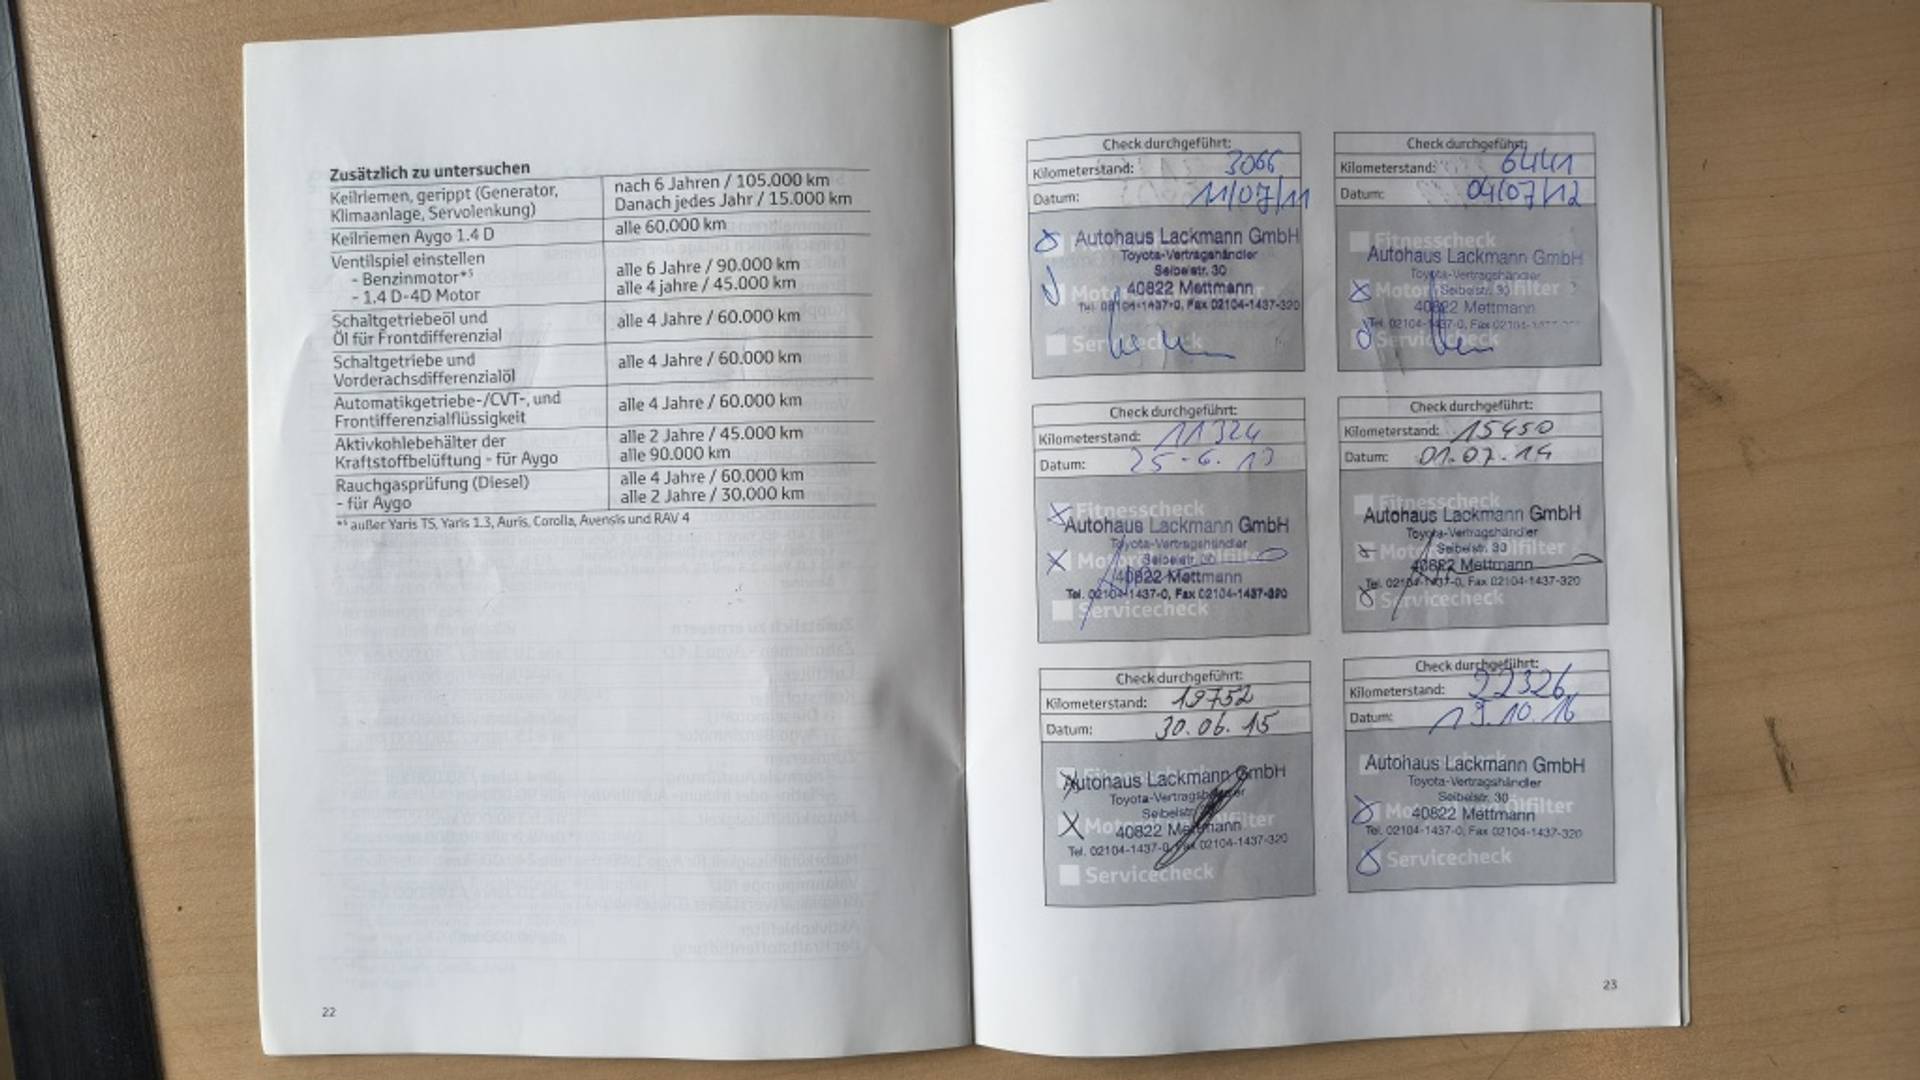 Zusätzlich zu untersuchen
Keilriemen, gerippt (Generator, Klimaanlage, Servolenkung)
nach 6 Jahren / 105.000 km
Danach jedes Jahr / 15.000 km
Keilriemen Aygo 1.4 D
alle 60.000 km
Ventilspiel einstellen
- Benzinmotor*⁵
alle 6 Jahre / 90.000 km
- 1.4 D-4D Motor
alle 4 jahre / 45.000 km
Schaltgetriebeöl und
Öl für Frontdifferenzial
alle 4 Jahre / 60.000 km
Schaltgetriebe und
Vorderachsdifferenzialöl
alle 4 Jahre / 60.000 km
Automatikgetriebe-/CVT-, und
Frontifferenzialflüssigkeit
alle 4 Jahre / 60.000 km
Aktivkohlebehälter der
Kraftstoffbelüftung - für Aygo
alle 2 Jahre / 45.000 km
alle 90.000 km
Rauchgasprüfung (Diesel)
- für Aygo
alle 4 Jahre / 60.000 km
alle 2 Jahre / 30.000 km
*⁵ außer Yaris TS, Yaris 1.3, Auris, Corolla, Avensis und RAV 4
22
Check durchgeführt:
Kilometerstand: 3066
Datum: 11/07/11
Autohaus Lackmann GmbH
Toyota-Vertragshändler
Seibelstr. 30
40822 Mettmann
Tel. 02104-1437-0, Fax 02104-1437-320
Servicecheck
Check durchgeführt:
Kilometerstand: 6441
Datum: 04/07/12
Fitnesscheck
Autohaus Lackmann GmbH
Toyota-Vertragshändler
Seibelstr. 30
40822 Mettmann
Tel. 02104-1437-0, Fax 02104-1437-320
Servicecheck
Check durchgeführt:
Kilometerstand: 11324
Datum: 25-6.13
Fitnesscheck
Autohaus Lackmann GmbH
Toyota-Vertragshändler
Seibelstr. 30
40822 Mettmann
Tel. 02104-1437-0, Fax 02104-1437-320
Servicecheck
Check durchgeführt:
Kilometerstand: 15450
Datum: 01.07.14
Fitnesscheck
Autohaus Lackmann GmbH
Toyota-Vertragshändler
Seibelstr. 30
40822 Mettmann
Tel. 02104-1437-0, Fax 02104-1437-320
Servicecheck
Check durchgeführt:
Kilometerstand: 19752
Datum: 30.06.15
Autohaus Lackmann GmbH
Toyota-Vertragshändler
Seibelstr.
40822 Mettmann
Tel. 02104-1437-0, Fax 02104-1437-320
Servicecheck
Check durchgeführt:
Kilometerstand: 22326
Datum: 19.10.16
Autohaus Lackmann GmbH
Toyota-Vertragshändler
Seibelstr. 30
40822 Mettmann
Tel. 02104-1437-0, Fax 02104-1437-320
Servicecheck
23